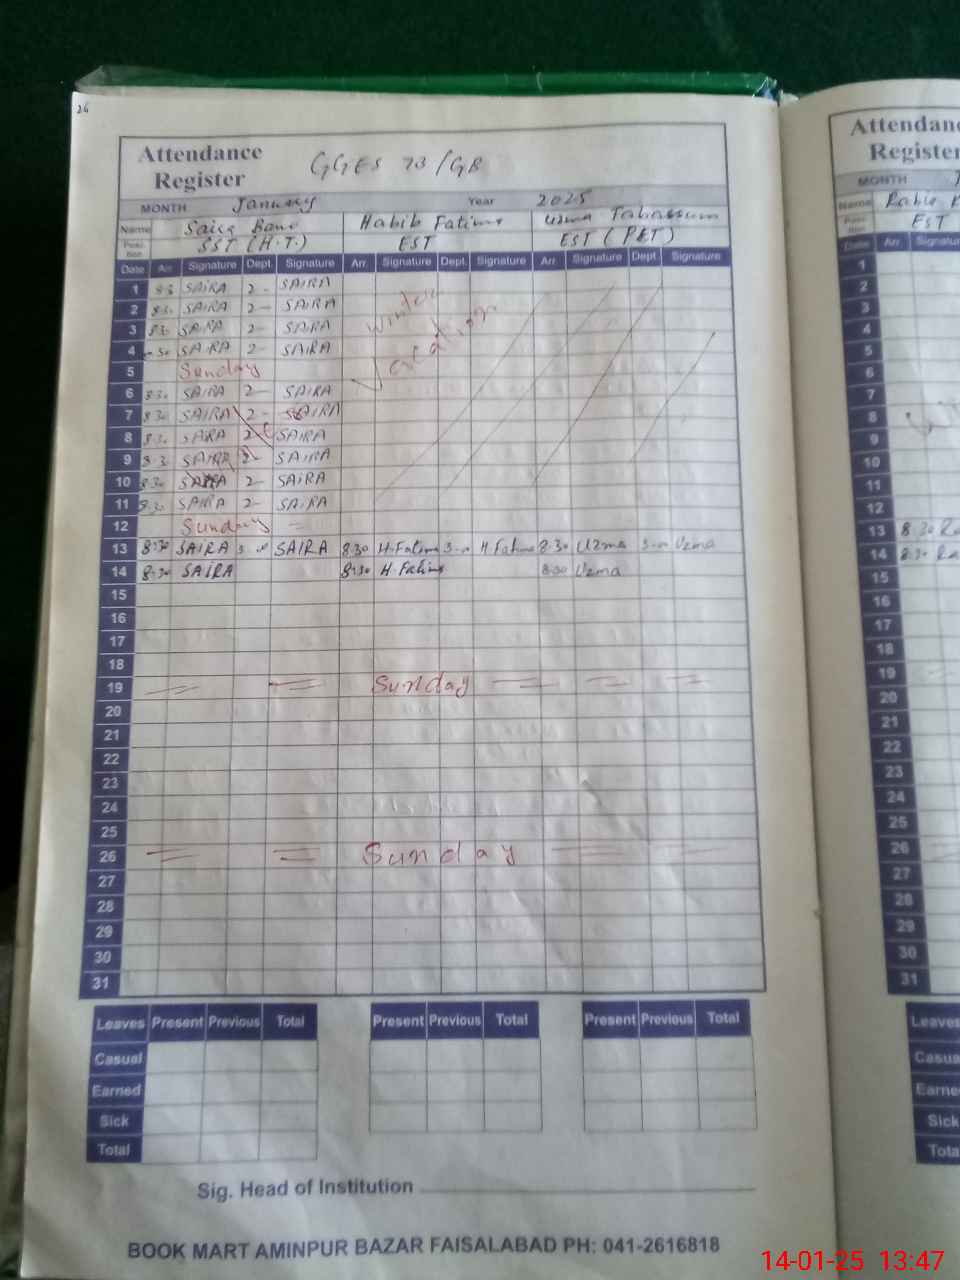 26
Attendance Register GGES 73/GB
MONTH January Year 2025
Name Saira Bano Habib Fatima Uzma Tabassum
Posi-tion SST (H.T.) EST EST (PET)
Date Arr. Signature Dept. Signature Arr. Signature Dept. Signature Arr. Signature Dept. Signature
1 8:3 SAIRA 2- SAIRA
2 8:30 SAIRA 2- SAIRA Winter
3 8:30 SAIRA 2- SAIRA Vacations
4 SAIRA 2- SAIRA
5 Sunday
6 8:30 SAIRA 2- SAIRA
7 8:30 SAIRA 2- SAIRA
8 8:30 SAIRA 2- SAIRA
9 8:3 SAIRA 2- SAIRA
10 8:30 SAIRA 2- SAIRA
11 8:30 SAIRA 2- SAIRA
12 Sunday =
13 8:30 SAIRA SAIRA 8:30 H.Fatima H.Fatima 8:30 Uzma Uzma
14 8:30 SAIRA 8:30 H.Fatima 8:30 Uzma
15
16
17
18
19 Sunday
20
21
22
23
24
25
26 Sunday
27
28
29
30
31
Leaves Present Previous Total Present Previous Total Present Previous Total
Casual
Earned
Sick
Total
Sig. Head of Institution
BOOK MART AMINPUR BAZAR FAISALABAD PH: 041-2616818
Attendanc
Register
MONTH
Name Rabia
Posi-tion EST
Date Arr. Signatur
1
2
3
4
5
6
7
8
9
10
11
12
13 8:30 Ra
14 8:30 Ra
15
16
17
18
19
20
21
22
23
24
25
26
27
28
29
30
31
Leaves
Casua
Earne
Sick
Tota
14-01-25 13:47